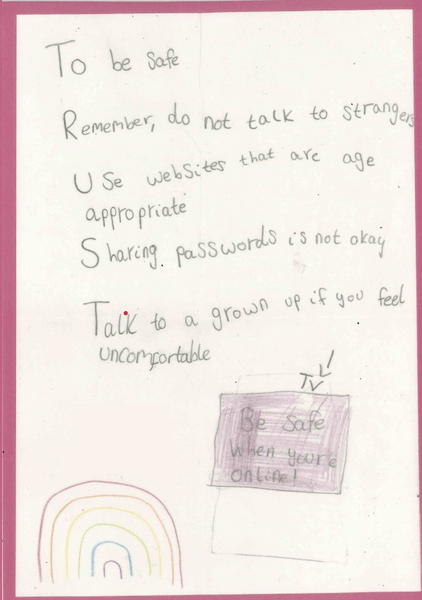 To be safe
Remember, do not talk to strangers
Use websites that are age
appropriate
Sharing passwords is not okay
Talk to a grown up if you feel
uncomfortable
TV
Be safe
when you're
online!